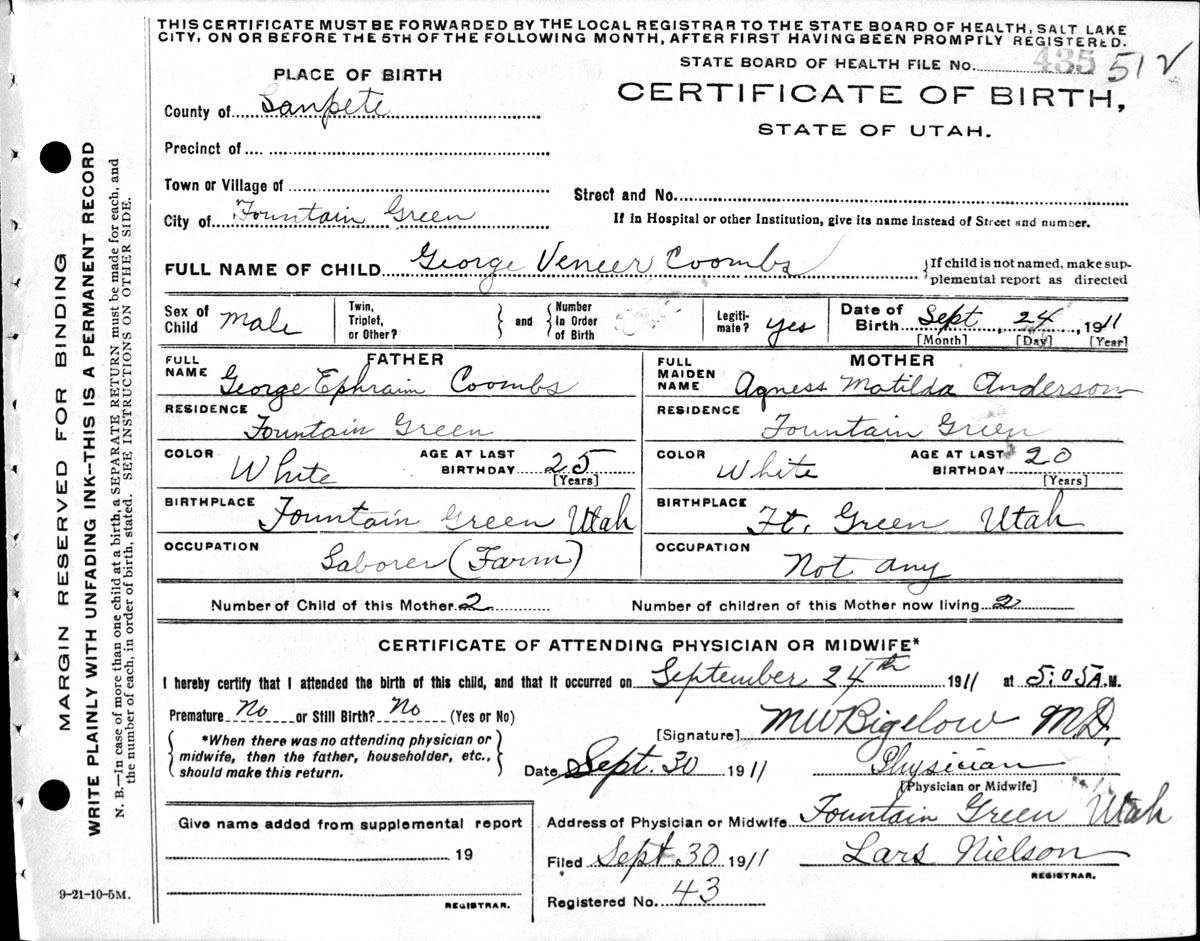 THIS CERTIFICATE MUST BE FORWARDED BY THE LOCAL REGISTRAR TO THE STATE BOARD OF HEALTH, SALT LAKE
CITY, ON OR BEFORE THE 5TH OF THE FOLLOWING MONTH, AFTER FIRST HAVING BEEN PROMPTLY REGISTERED.
STATE BOARD OF HEALTH FILE No. 435 512
PLACE OF BIRTH
CERTIFICATE OF BIRTH,
STATE OF UTAH.
County of Sanpete
Precinct of
Town or Village of
Street and No.
City of Fountain Green
If in Hospital or other Institution, give its name instead of Street and number.
FULL NAME OF CHILD George Veneer Coombs
{If child is not named, make sup-
plemental report as directed
Sex of Child Male
Twin, Triplet, or Other? } and { Number in Order of Birth
Legiti-mate? yes
Date of Birth Sept, 24, 1911
[Month] [Day] [Year]
FATHER
FULL NAME George Ephraim Coombs
RESIDENCE Fountain Green
COLOR White AGE AT LAST BIRTHDAY 25 [Years]
BIRTHPLACE Fountain Green Utah
OCCUPATION Laborer (Farm)
MOTHER
FULL MAIDEN NAME Agness Matilda Anderson
RESIDENCE Fountain Green
COLOR White AGE AT LAST BIRTHDAY 20 [Years]
BIRTHPLACE Ft. Green Utah
OCCUPATION Not any
Number of Child of this Mother 2 Number of children of this Mother now living 2
CERTIFICATE OF ATTENDING PHYSICIAN OR MIDWIFE*
I hereby certify that I attended the birth of this child, and that it occurred on September 24th 1911 at 5:05 A.M.
Premature No or Still Birth? No (Yes or No)
[Signature] MW Bigelow M.D.
{ *When there was no attending physician or
midwife, then the father, householder, etc.,
should make this return. }
Date Sept. 30 1911 Physician
[Physician or Midwife]
Give name added from supplemental report
19
REGISTRAR.
Address of Physician or Midwife Fountain Green Utah
Filed Sept 30 1911 Lars Nielson
REGISTRAR.
Registered No. 43
9-21-10-5M.
MARGIN RESERVED FOR BINDING
WRITE PLAINLY WITH UNFADING INK--THIS IS A PERMANENT RECORD
N. B.—In case of more than one child at a birth, a SEPARATE RETURN must be made for each, and
the number of each, in order of birth, stated. SEE INSTRUCTIONS ON OTHER SIDE.